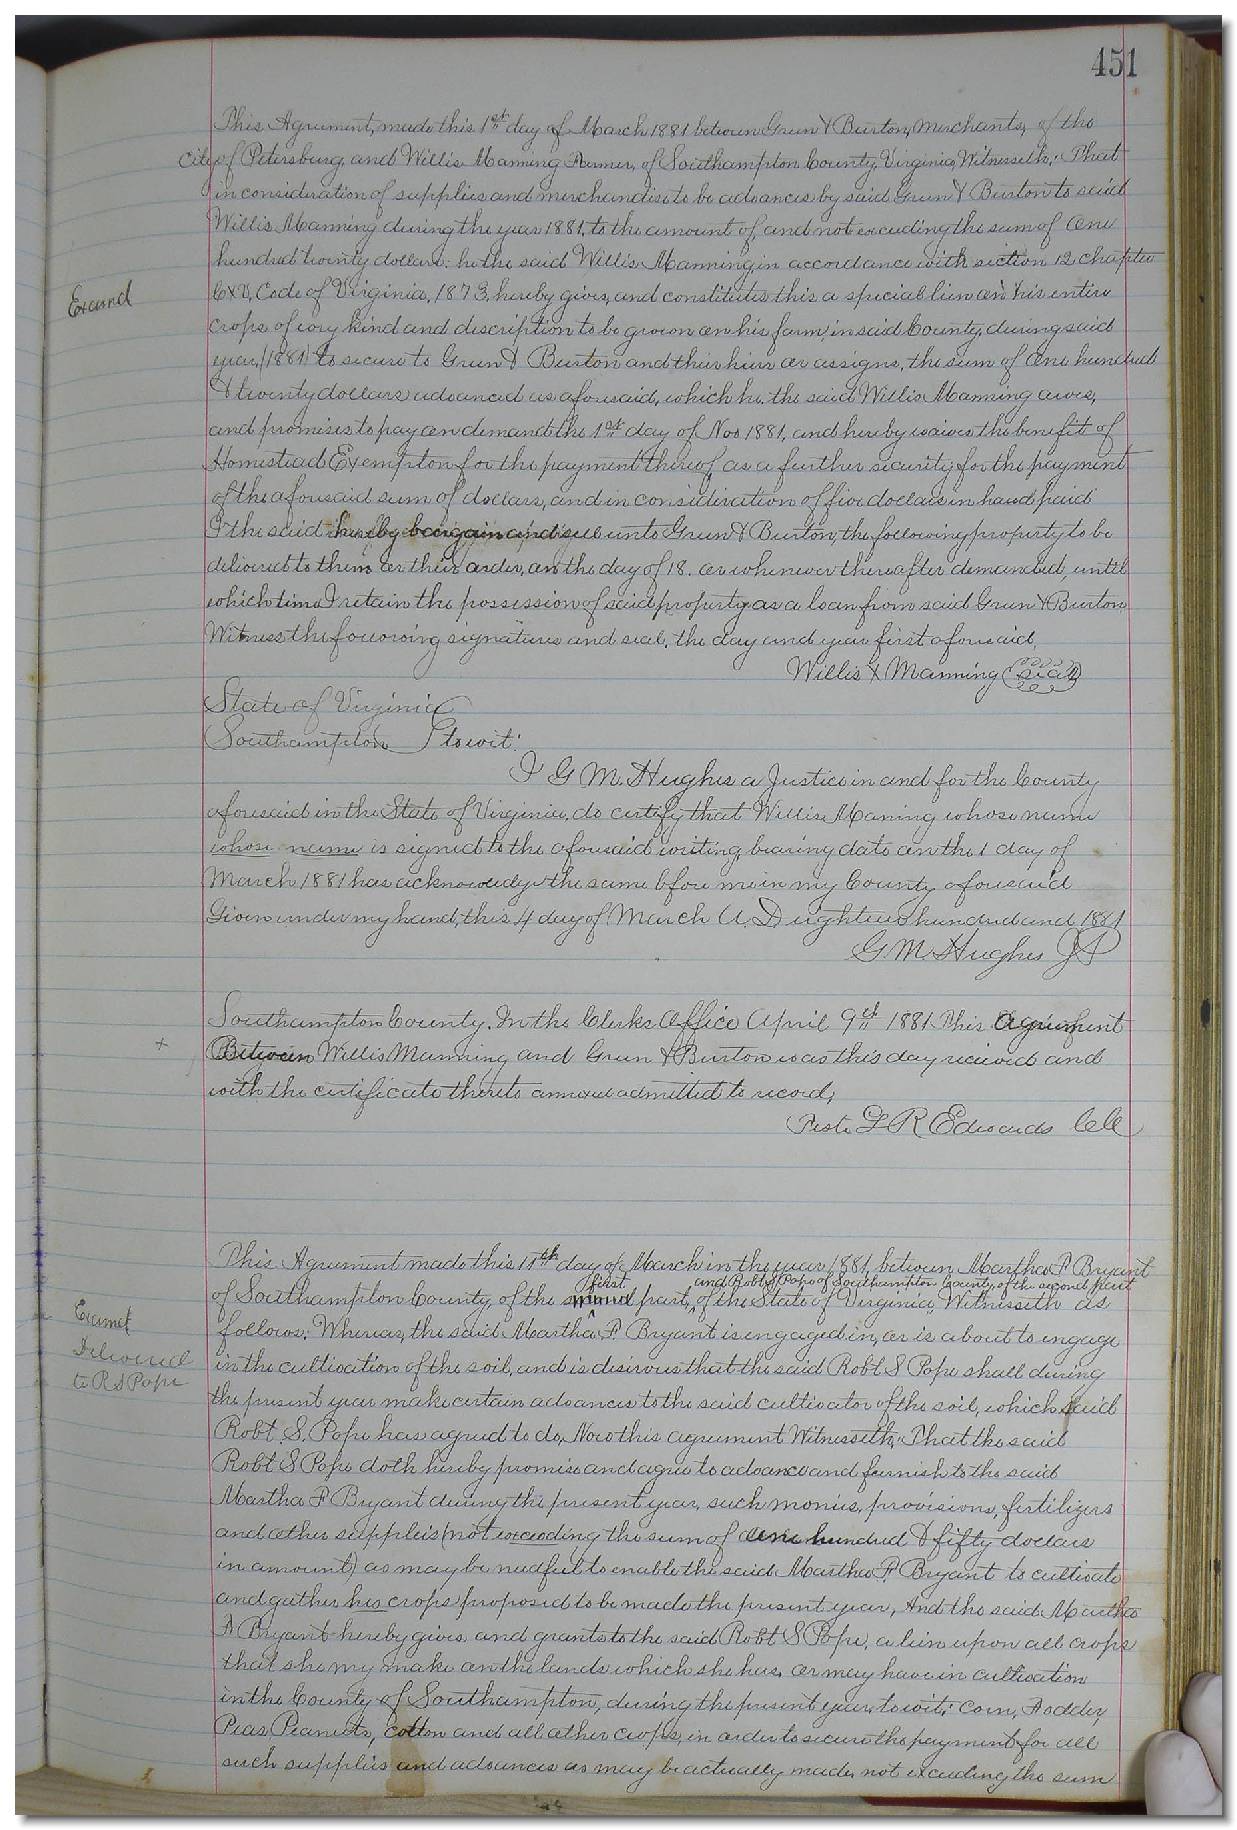 451
This Agreement, made this 1st day of March 1881 between Green & Burton, Merchants, of the
City of Petersburg, and Willis Manning Farmer, of Southampton County, Virginia, Witnesseth, That
in consideration of supplies and merchandise to be advances by said Green & Burton to said
Willis Manning during the year 1881, to the amount of, and not exceeding the sum of One
hundred twenty dollars. he the said Willis Manning in accordance with section 12 chapter
CXV, Code of Virginia, 1873, hereby gives, and constitutes this a special lien on his entire
crops of every kind and description to be grown on his farm, in said County, during said
year, (1881) to secure to Green & Burton and their heirs or assigns, the sum of One hundred
& twenty dollars advanced as aforesaid, which he the said Willis Manning owes,
and promises to pay on demand the 1st day of Nov 1881, and hereby waives the benefit of
Homestead Exempton for the payment thereof, as a further security for the payment
of the aforesaid sum of dollars, and in consideration of five dollars in hand paid
I the said hereby bargain and sell unto Green & Burton, the following property to be
delivered to them or their order, on the day of 18. or whenever thereafter demanded, until
which time I retain the possession of said property as a loan from said Green & Burton
Witness the following signatures and seal. the day and year first aforesaid.
Willis X Manning (seal)
Examd
State of Virginia
Southampton towit:
I G M. Hughes a Justice in and for the County
aforesaid in the State of Virginia, do certify that Willis Maning whose name
whose name is signed to the aforesaid writing, bearing date on the 1 day of
March 1881 has acknowledge the same before me in my County aforesaid
Given under my hand, this 4 day of March A. D eighteen hundred and 1881
G. M. Hughes JP
Southampton County. In the Clerks Office April 9th 1881 This Agreement
+ Between Willis Manning and Green & Burton was this day recieved and
with the certificate thereto annexed admitted to record,
Teste L R Edwards CC
This Agreement made this 11th day of March in the year 1881, between Martha F Bryant
first and Robt S Pope of Southampton County of the second part
of Southampton County of the second part, of the State of Virginia, Witnesseth as
follows; Whereas, the said Martha F Bryant is engaged in, or is about to engage
in the cultivation of the soil, and is desirous that the said Robt S Pope shall during
the present year make certain advances to the said cultivator of the soil, which said
Robt. S. Pope has agreed to do, Now this agreement Witnesseth, That the said
Robt S Pope doth hereby promise and agree to advance and furnish to the said
Martha F Bryant during the present year, such monies, provisions, fertilizers
and other supplies (not exceeding the sum of One hundred & fifty dollars
in amount) as may be needful to enable the said Martha F. Bryant to cultivate
and gather his crops proposed to be made the present year, And the said Martha
F Bryant hereby gives and grants to the said Robt S Pope, a lien upon all crops
that she my make on the lands which she has, or may have in cultivation
in the County of Southampton, during the present year, to wit; Corn, Fodder,
Peas, Peanuts, cotton and all other crops, in order to secure the payment for all
such supplies and advances as may be actually made, not exceeding the sum
Examd
Delivered
to R S Pope